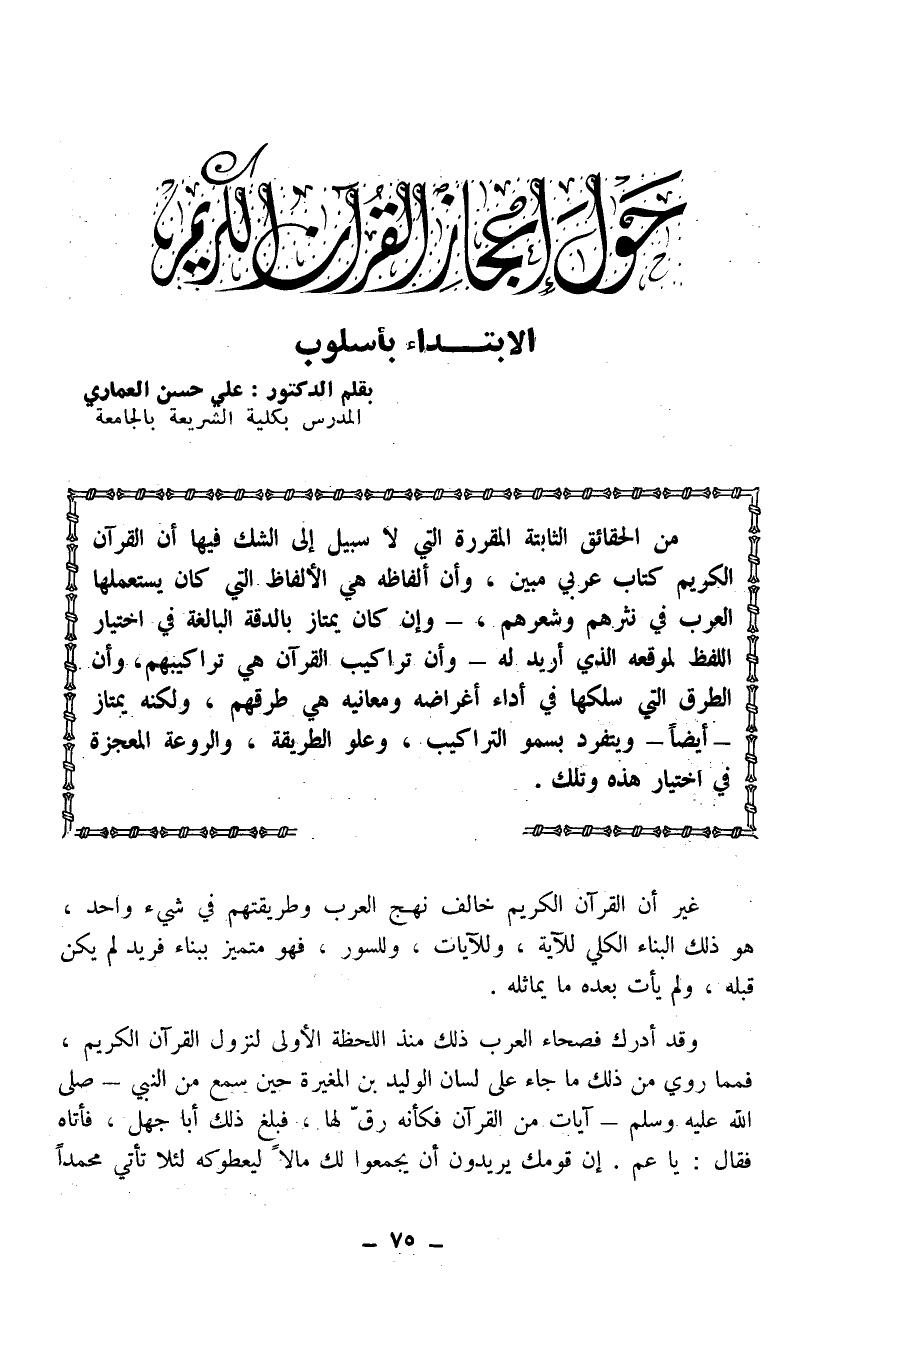 حول إعجاز القرآن الكريم
الابتــــداء بأسلوب
بقلم الدكتور : علي حسن العماري
المدرس بكلية الشريعة بالجامعة
من الحقائق الثابتة المقررة التي لا سبيل إلى الشك فيها أن القرآن
الكريم كتاب عربي مبين ، وأن ألفاظه هي الألفاظ التي كان يستعملها
العرب في نثرهم وشعرهم ، – وإن كان يمتاز بالدقة البالغة في اختيار
اللفظ لموقعه الذي أريد له – وأن تراكيب القرآن هي تراكيبهم، وأن
الطرق التي سلكها في أداء أغراضه ومعانيه هي طرقهم ، ولكنه يمتاز
– أيضاً – ويتفرد بسمو التراكيب ، وعلو الطريقة ، والروعة المعجزة
في اختيار هذه وتلك .
غير أن القرآن الكريم خالف نهج العرب وطريقتهم في شيء واحد ،
هو ذلك البناء الكلي للآية ، وللآيات ، وللسور ، فهو متميز ببناء فريد لم يكن
قبله ، ولم يأت بعده ما يماثله .
وقد أدرك فصحاء العرب ذلك منذ اللحظة الأولى لنزول القرآن الكريم ،
فمما روي من ذلك ما جاء على لسان الوليد بن المغيرة حين سمع من النبي – صلى
الله عليه وسلم – آيات من القرآن فكأنه رقّ لها ، فبلغ ذلك أبا جهل ، فأتاه
فقال : يا عم . إن قومك يريدون أن يجمعوا لك مالاً ليعطوكه لئلا تأتي محمداً
– ٧٥ –